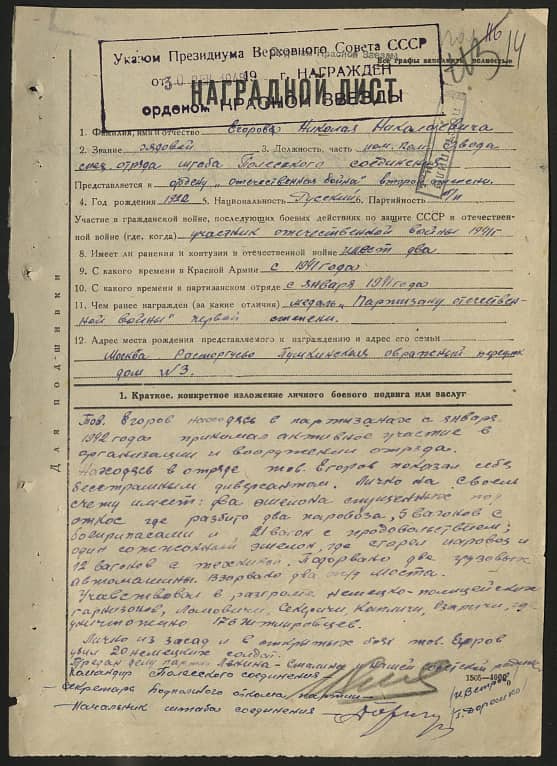 Указом Президиума Верховного Совета СССР
от 30 19 г. НАГРАЖДЕН
орденом КРАСНОЙ ЗВЕЗДЫ
Все графы заполнять полностью
14
НАГРАДНОЙ ЛИСТ
1. Фамилия, имя и отчество Егорова Николая Николаевича
2. Звание рядовой 3. Должность, часть пом. ком. взвода
спец отряда штаба Полесского соединения
Представляется к ордену „отечественная война" второй степени.
4. Год рождения 1922 5. Национальность Русский 6. Партийность б/п
Участие в гражданской войне, последующих боевых действиях по защите СССР и отечествен-
ной войне (где, когда) участник отечественной войны 1941г
8. Имеет ли ранения и контузии в отечественной войне имеет два
9. С какого времени в Красной Армии с 1941 года
10. С какого времени в партизанском отряде с января 1941 года
11. Чем ранее награжден (за какие отличия) медаль „Партизану отечествен-
ной войны" первой степени.
12. Адрес места рождения представляемого к награждению и адрес его семьи
Москва Расторгуево Пушкинская овражный переулок
дом №3.
Для подшивки
1. Краткое, конкретное изложение личного боевого подвига или заслуг
Тов. Егоров находясь в партизанах с января
1942 года принимал активное участие в
организации и вооружении отряда.
Находясь в отряде тов. Егоров показал себя
бесстрашным диверсантом. Лично на своем
счету имеет: два эшелона спущенных под
откос где разбито два паровоза, 5 вагонов с
боеприпасами и 21 вагон с продовольствием;
один сожженный эшелон, где сгорел паровоз и
12 вагонов с техникой. Подорвано две грузовых
автомашины. Взорвано два моста.
Учавствовал в разгроме немецко-полицейских
гарнизонов, Ломовичи, Секеричи, Копличи, где
уничтожено 176 гитлеровцев.
Лично из засад и в открытых боях тов. Егоров
убил 20 немецких солдат.
Предан делу партии Ленина-Сталина и нашей советской родине
Командир Полесского соединения
Секретарь Подпольного обкома партии
/И Ветров/
Начальник штаба соединения
1505-4000